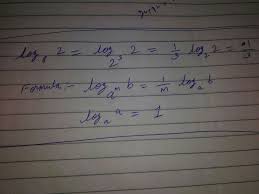 log₈ 2 = log_{2³} 2 = 1/3 log₂ 2 = 1/3
Formula:- log_{a^m} b = 1/m log_a b
log_a a = 1